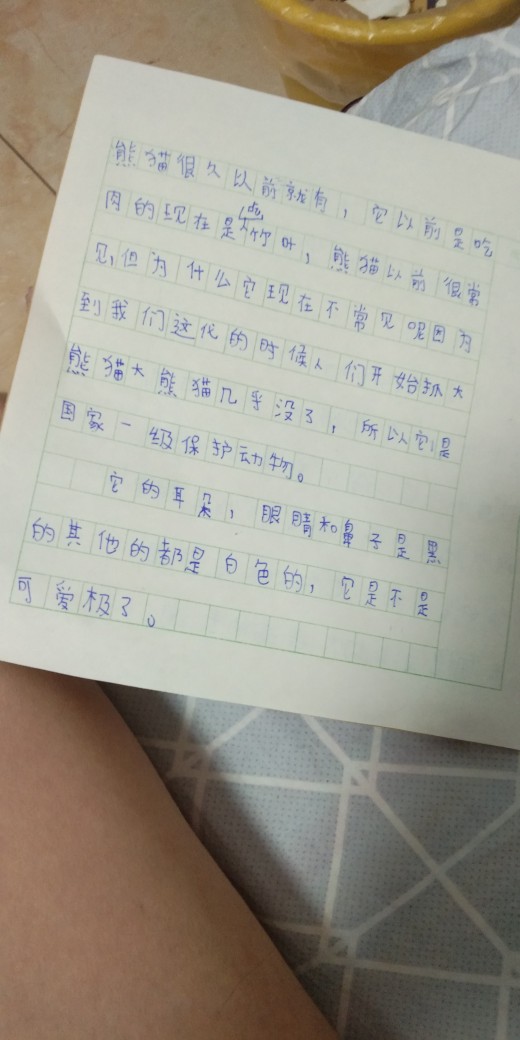 熊猫很久以前就有，它以前是吃
肉的现在是竹叶，熊猫以前很常
见，但为什么它现在不常见呢因为
到我们这代的时候人们开始抓大
熊猫大熊猫几乎没了，所以它是
国家一级保护动物。
它的耳朵，眼睛和鼻子是黑
的其他的都是白色的，它是不是
可爱极了。